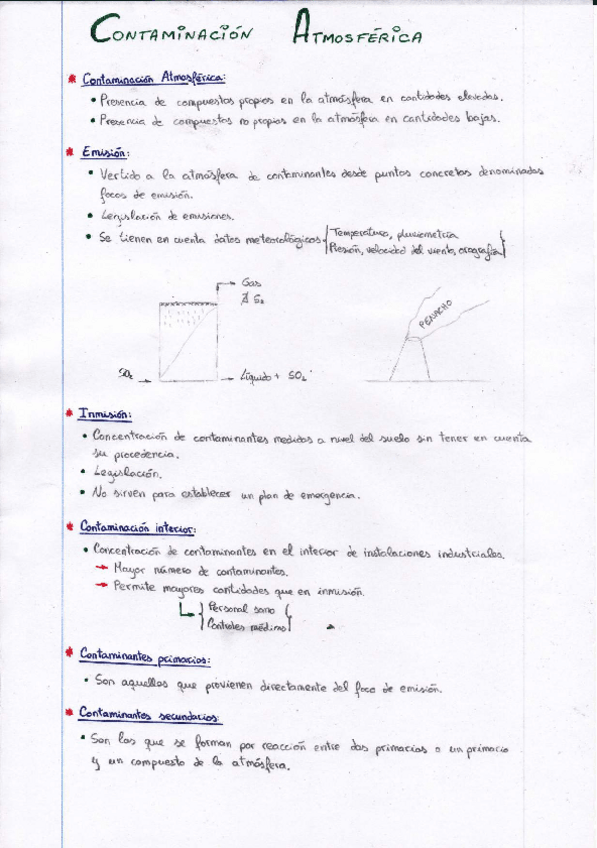 CONTAMINACIÓN ATMOSFÉRICA
* Contaminación Atmosférica:
• Presencia de compuestos propios en la atmósfera en cantidades elevadas.
• Presencia de compuestos no propios en la atmósfera en cantidades bajas.
* Emisión:
• Vertido a la atmósfera de contaminantes desde puntos concretos denominados
focos de emisión.
• Legislación de emisiones.
• Se tienen en cuenta datos meteorológicos { Temperatura, pluviometría
Presión, velocidad del viento, orografía }
Gas
PENACHO
SO₂ →
→ Líquido + SO₂
* Inmisión:
• Concentración de contaminantes medidos a nivel del suelo sin tener en cuenta
su procedencia.
• Legislación.
• No sirven para establecer un plan de emergencia.
* Contaminación interior:
• Concentración de contaminantes en el interior de instalaciones industriales.
→ Mayor número de contaminantes.
→ Permite mayores cantidades que en inmisión.
{ Personal sano
Controles médicos }
* Contaminantes primarios:
• Son aquellos que provienen directamente del foco de emisión.
* Contaminantes secundarios:
• Son los que se forman por reacción entre dos primarios o un primario
y un compuesto de la atmósfera.